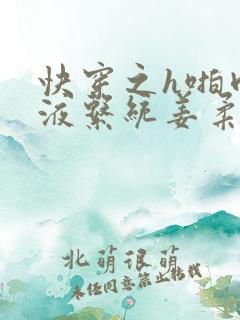 快穿之h啪
液系统姜柔
北萌很萌
未经同意禁止转载